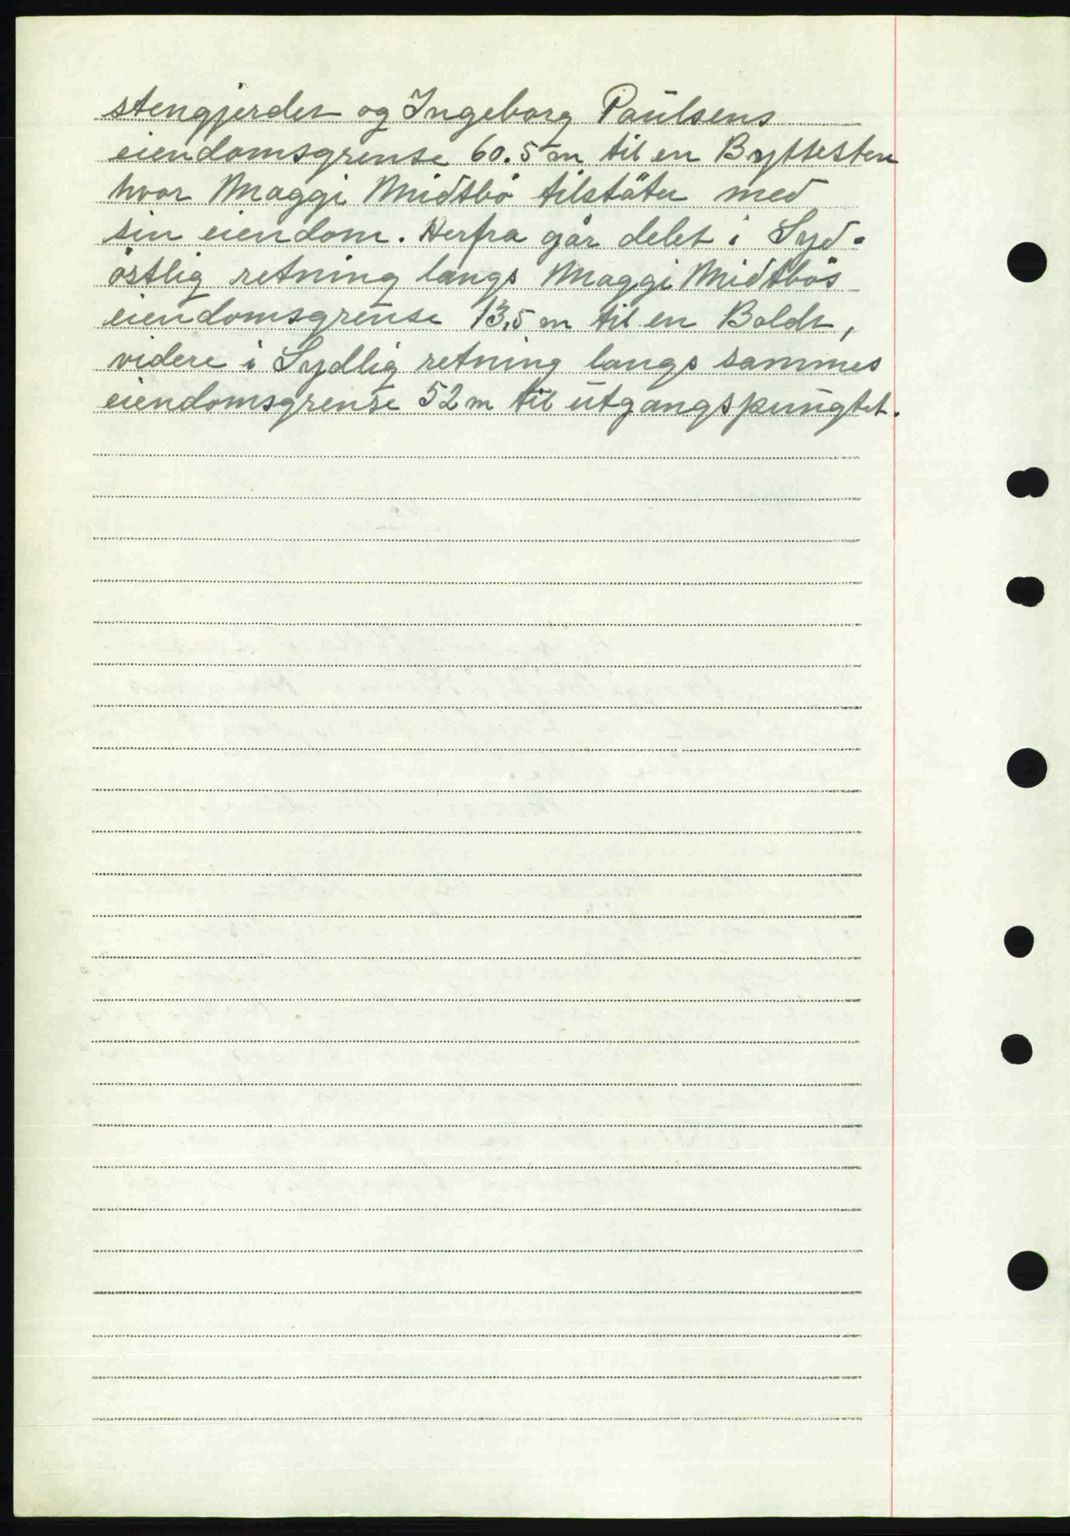 stengjerdet og Ingeborg Paulsens
eiendomsgrense 60.5 m til en Byttesten
hvor Maggi Midtbö tilstöter med
sin eiendom. Herfra går delet i Syd-
östlig retning langs Maggi Midtbös
eiendomsgrense 13,5 m til en Boldt,
videre i Sydlig retning langs sammes
eiendomsgrense 52 m til utgangspungtet.